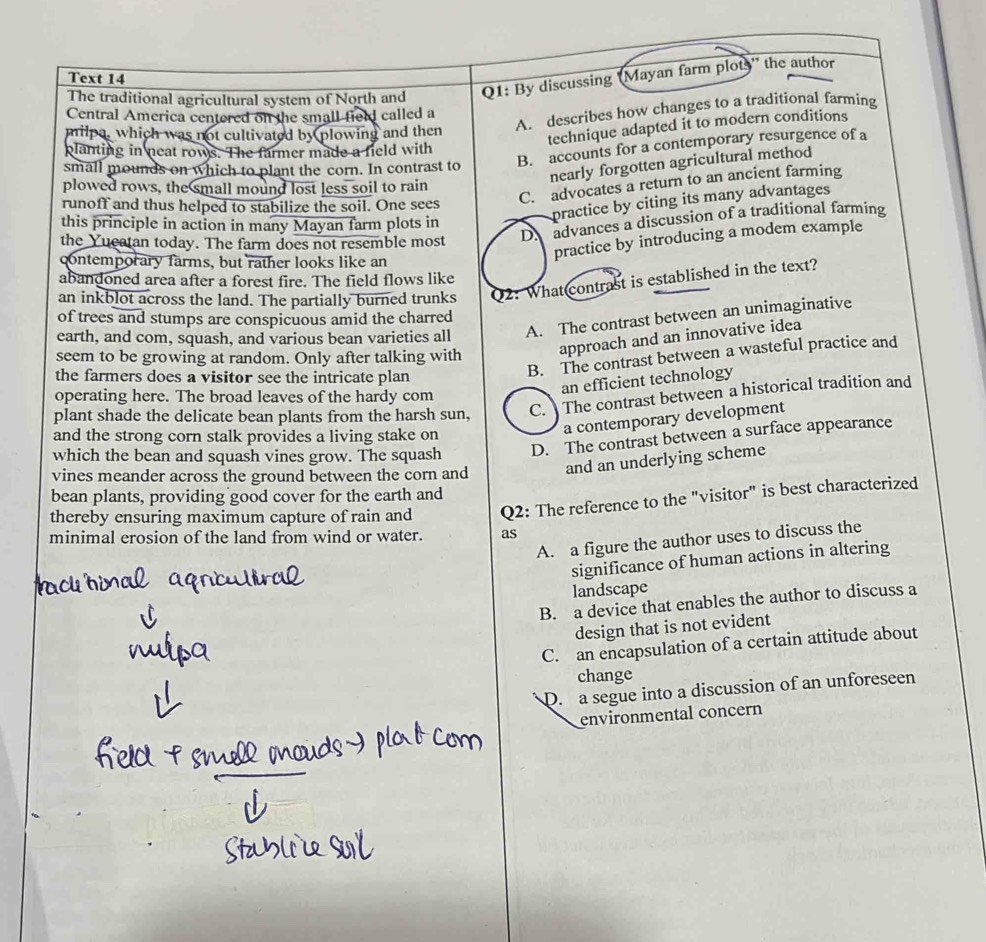 Text 14
The traditional agricultural system of North and
Central America centered on the small field called a
milpa, which was not cultivated by plowing and then
planting in neat rows. The farmer made a field with
small mounds on which to plant the corn. In contrast to
plowed rows, the small mound lost less soil to rain
runoff and thus helped to stabilize the soil. One sees
this principle in action in many Mayan farm plots in
the Yucatan today. The farm does not resemble most
contemporary farms, but rather looks like an
abandoned area after a forest fire. The field flows like
an inkblot across the land. The partially burned trunks
of trees and stumps are conspicuous amid the charred
earth, and com, squash, and various bean varieties all
seem to be growing at random. Only after talking with
the farmers does a visitor see the intricate plan
operating here. The broad leaves of the hardy com
plant shade the delicate bean plants from the harsh sun,
and the strong corn stalk provides a living stake on
which the bean and squash vines grow. The squash
vines meander across the ground between the corn and
bean plants, providing good cover for the earth and
thereby ensuring maximum capture of rain and
minimal erosion of the land from wind or water.
traditional agricultural
milpa
field + small mounds → plat corn
Stablize soil
Q1: By discussing "Mayan farm plots" the author
A. describes how changes to a traditional farming
technique adapted it to modern conditions
B. accounts for a contemporary resurgence of a
nearly forgotten agricultural method
C. advocates a return to an ancient farming
practice by citing its many advantages
D. advances a discussion of a traditional farming
practice by introducing a modem example
Q2: What contrast is established in the text?
A. The contrast between an unimaginative
approach and an innovative idea
B. The contrast between a wasteful practice and
an efficient technology
C. The contrast between a historical tradition and
a contemporary development
D. The contrast between a surface appearance
and an underlying scheme
Q2: The reference to the "visitor" is best characterized
as
A. a figure the author uses to discuss the
significance of human actions in altering
landscape
B. a device that enables the author to discuss a
design that is not evident
C. an encapsulation of a certain attitude about
change
D. a segue into a discussion of an unforeseen
environmental concern